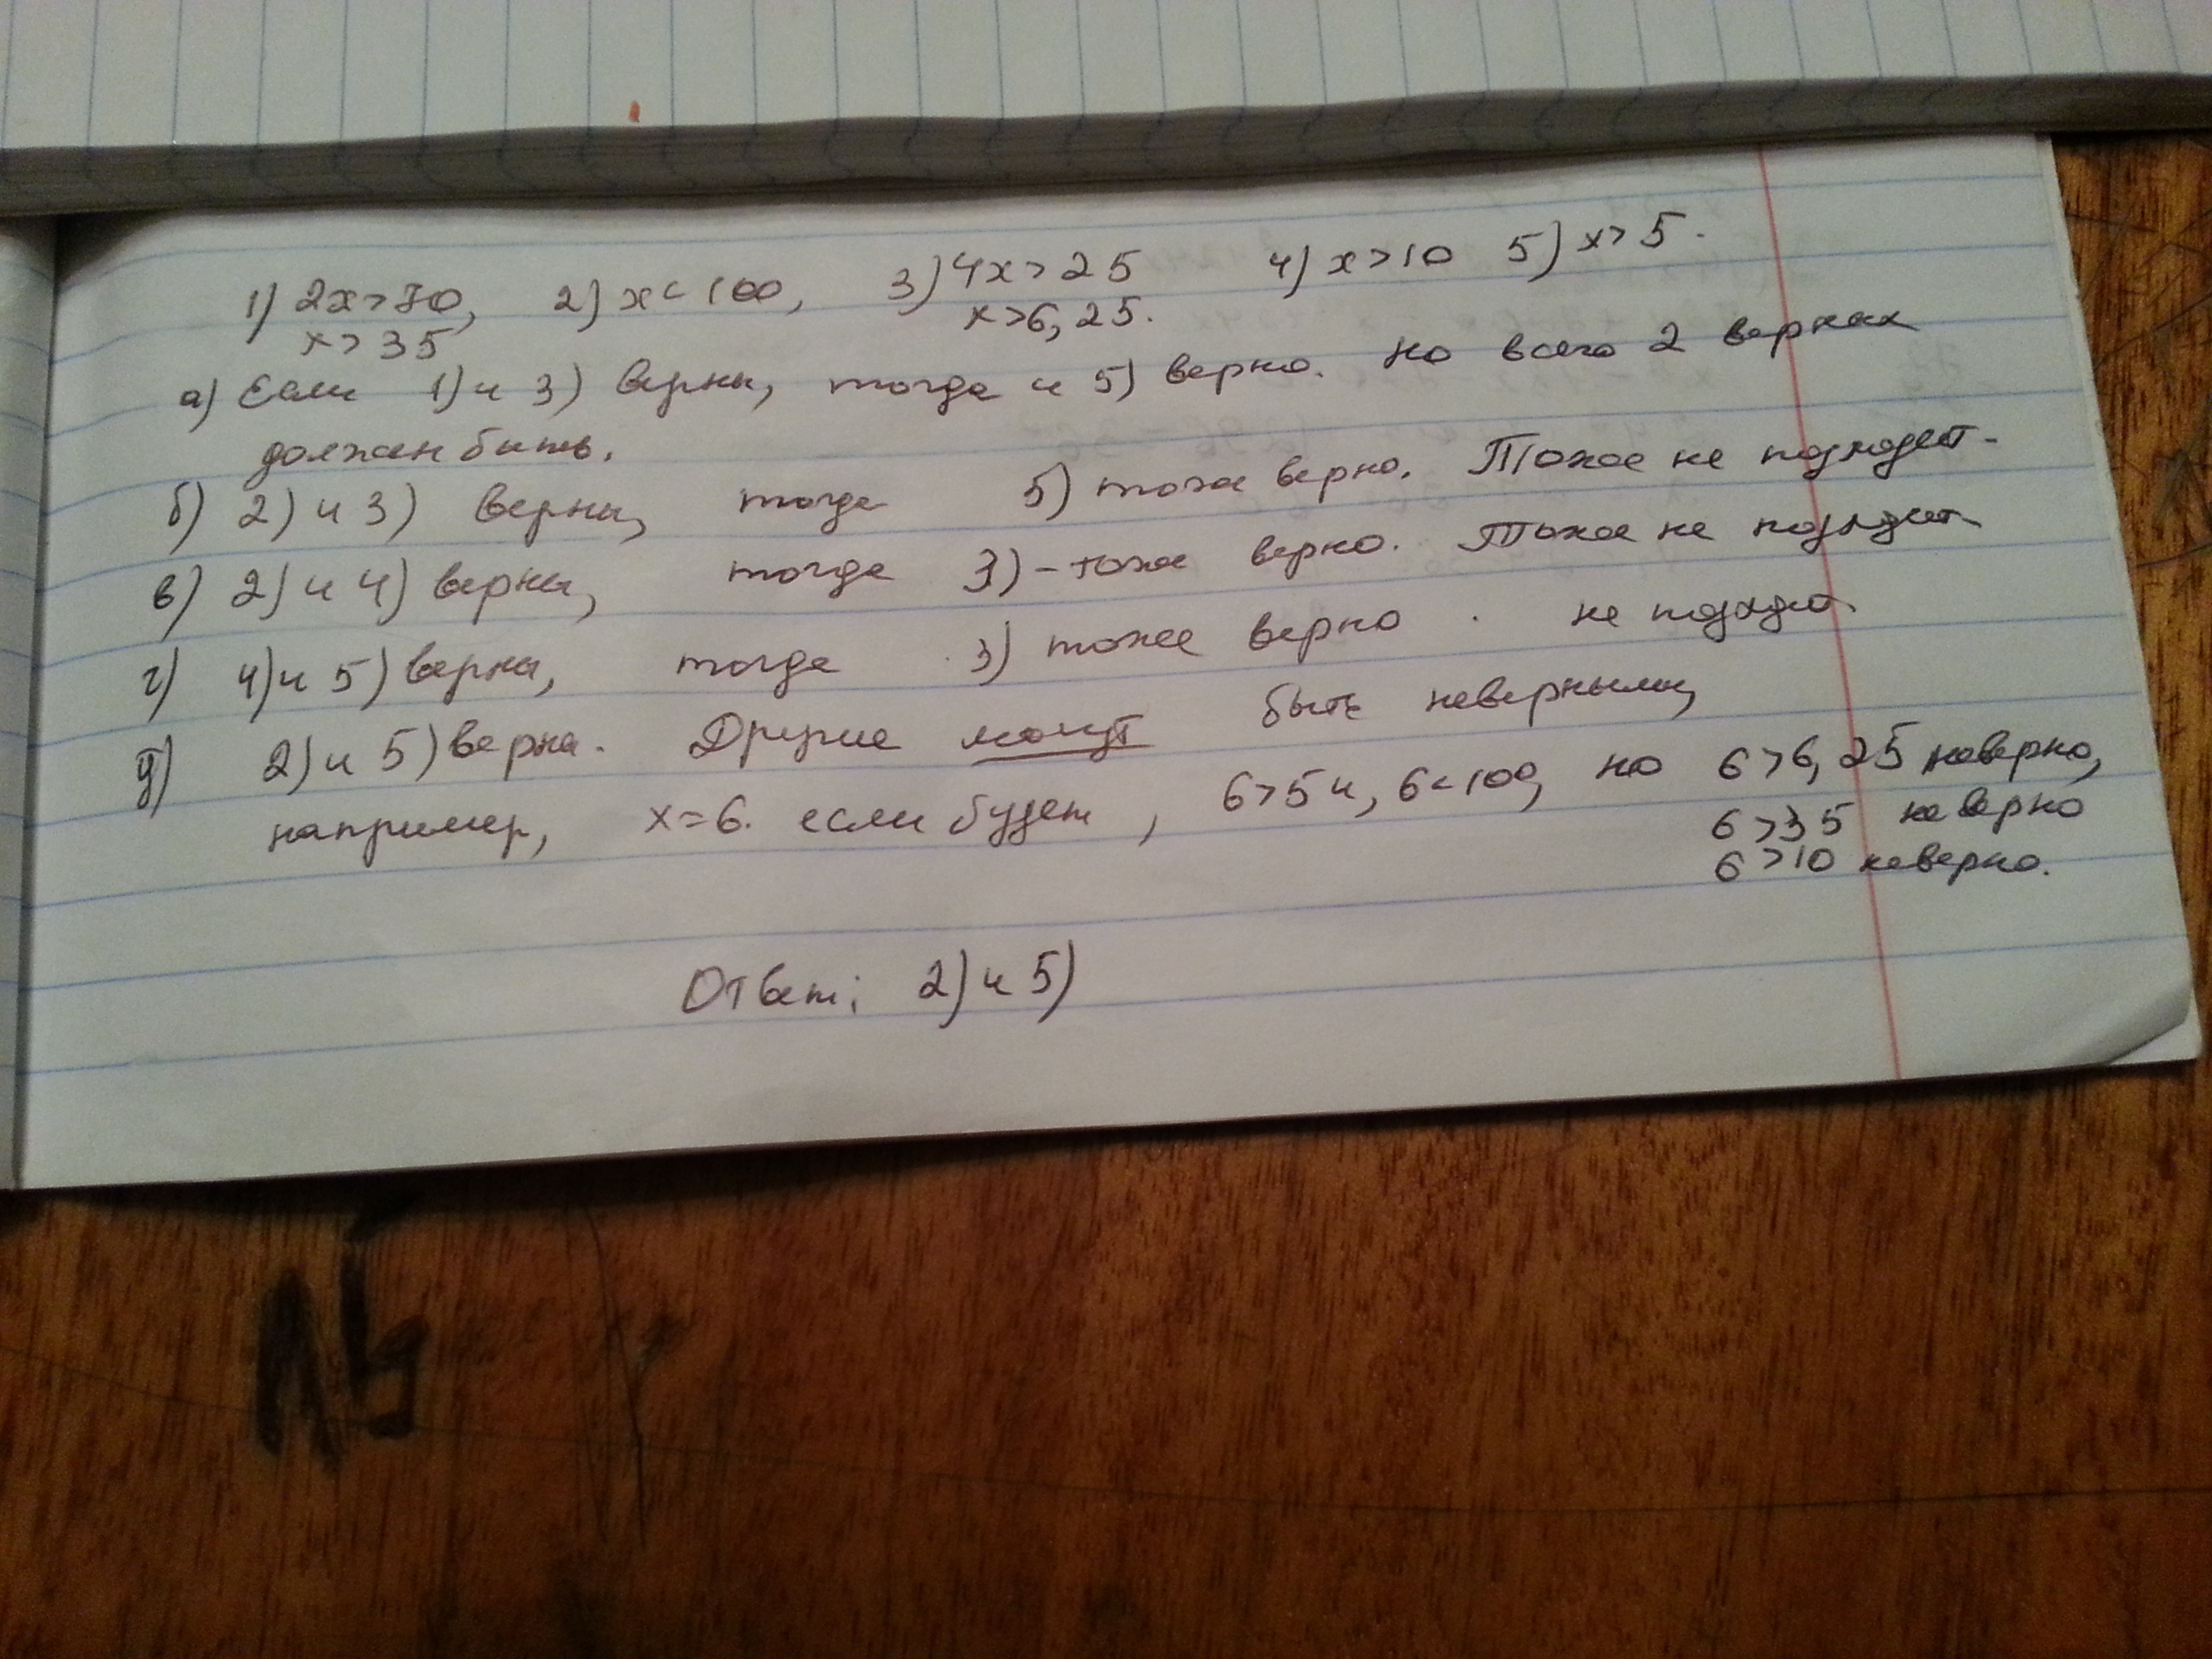 1) 2x>70, 2) x<100, 3) 4x>25 4) x>10 5) x>5.
x>35 x>6,25.
а) Если 1) и 3) верны, тогда и 5) верно. Но всего 2 верных
должен быть.
б) 2) и 3) верны, тогда 5) тоже верно. Тоже не подходет.
в) 2) и 4) верны, тогда 3) - тоже верно. Тоже не подходит
г) 4) и 5) верны, тогда 3) тоже верно. не подходит.
д) 2) и 5) верна. Другие могут быть неверными,
например, x=6. если будет, 6>5 и, 6<100, но 6>6,25 неверно,
6>35 неверно
6>10 неверно.
Ответ: 2) и 5)